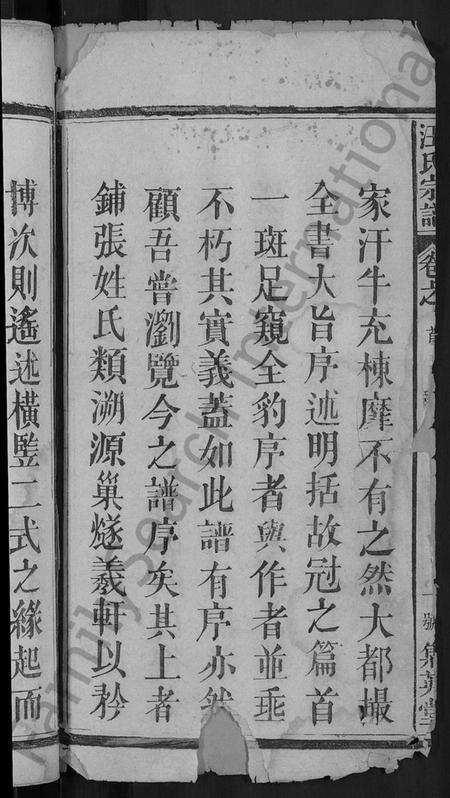 汪氏宗譜
卷之首
號
家汗牛充棟靡不有之然大都撮
全書大旨序述明括故冠之篇首
一斑足窺全豹序者與作者並垂
不朽其實義蓋如此譜有序亦然
顧吾嘗瀏覽今之譜序矣其上者
鋪張姓氏類溯源巢燧羲軒以矜
博次則遙述橫豎二式之緣起而
FamilySearch International